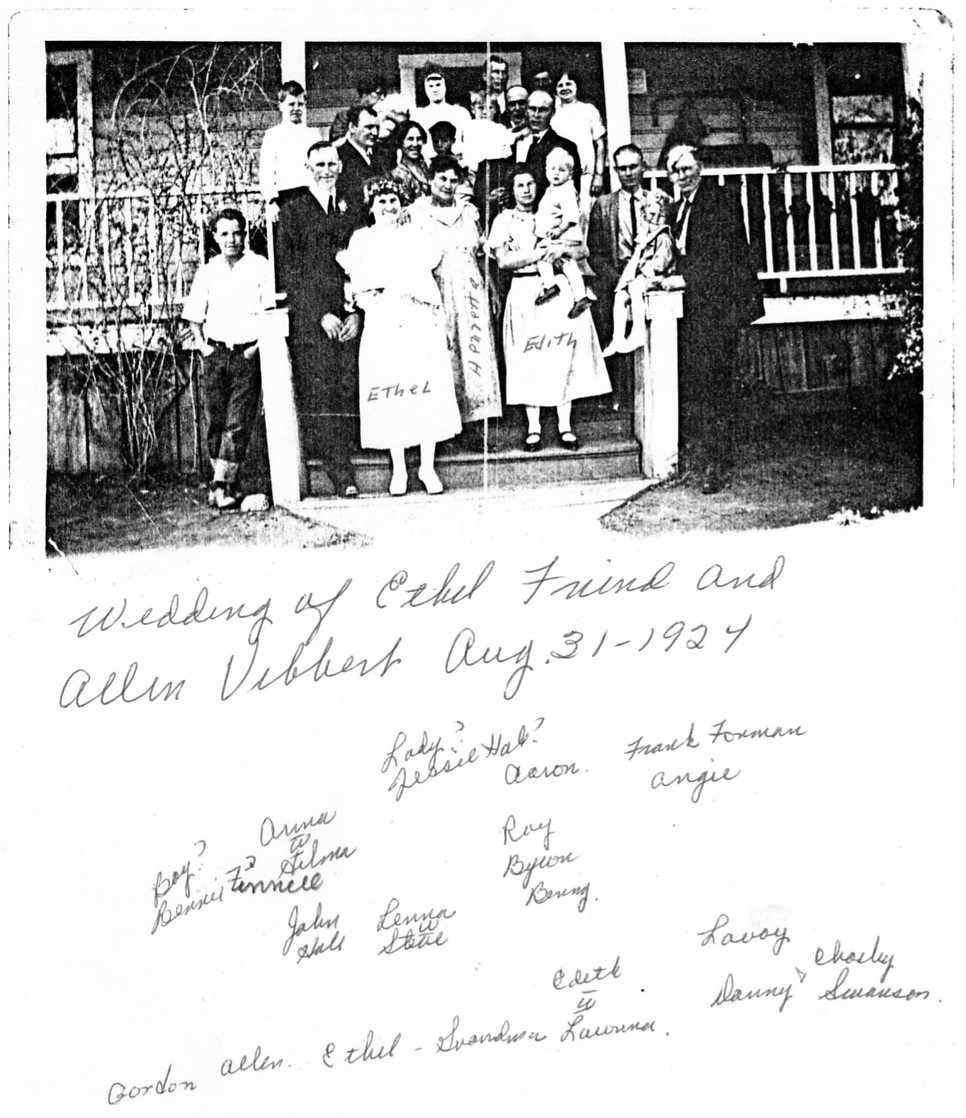 EtheL
Edith
Wedding of Ethel Friend and
Allen Vibbert Aug. 31-1924
Lady?
Jessie Hall?
Aaron.
Frank Forman
Angie
Anna
w
Boy?
Bennie Finnell
?
John
Hall
Lenna
w
Roy
Byron
Lavoy
Edith
w
Danny
Charley
Swanson.
Gordon Allen. Ethel - Grandma Lawrina.